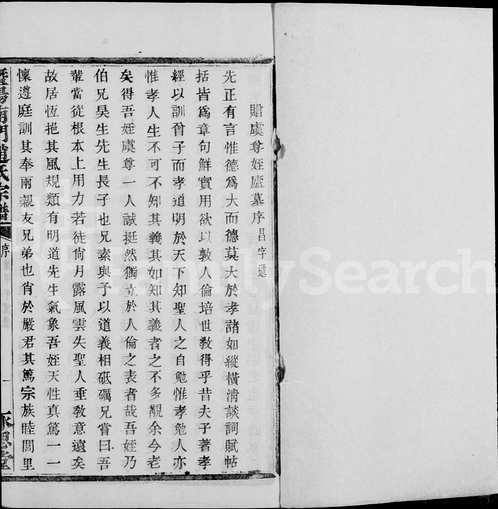 贈虞尊姪廬墓序 昌字
先正有言惟德爲大而德莫大於孝諸如縱橫淸談詞賦帖
括皆爲章句鮮實用欲以敦人倫培世敎得乎昔夫子著孝
經以訓曾子而孝道明於天下知聖人之自勉惟孝勉人亦
惟孝人生不可不知其義其如知其義者之不多覯余今老
矣得吾姪虞尊一人誠挺然獨立於人倫之表者哉吾姪乃
伯兄吳生先生長子也兄素與予以道義相砥礪兄嘗曰吾
輩當從根本上用力若徒尙月露風雲失聖人垂敎意遠矣
故居恆挹其風規類有明道先生氣象吾姪天性眞篤一一
懷遵庭訓其奉兩親友兄弟也肖於嚴君其篤宗族睦閭里
暨陽南門趙氏宗譜 序 一 永思堂
FamilySearch